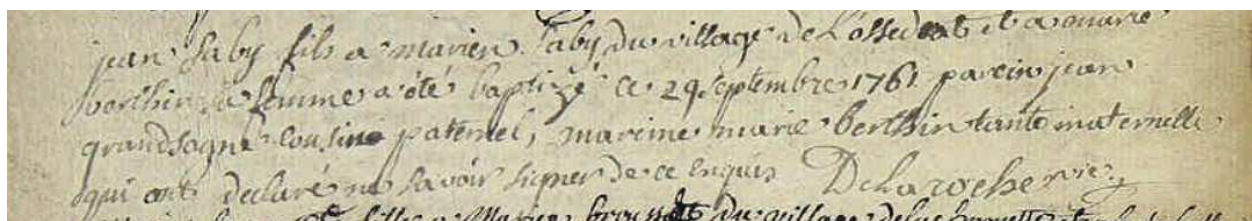 jean Saby fils a marien Saby du village de L'ossedat et a marie
berthin sa femme a été baptizé ce 29 septembre 1761 parein jean
grandsogne cousin paternel, mareine marie berthin tante maternelle
qui ont declaré ne savoir signer de ce enquis Delaroche vic.
fille a Marien du village